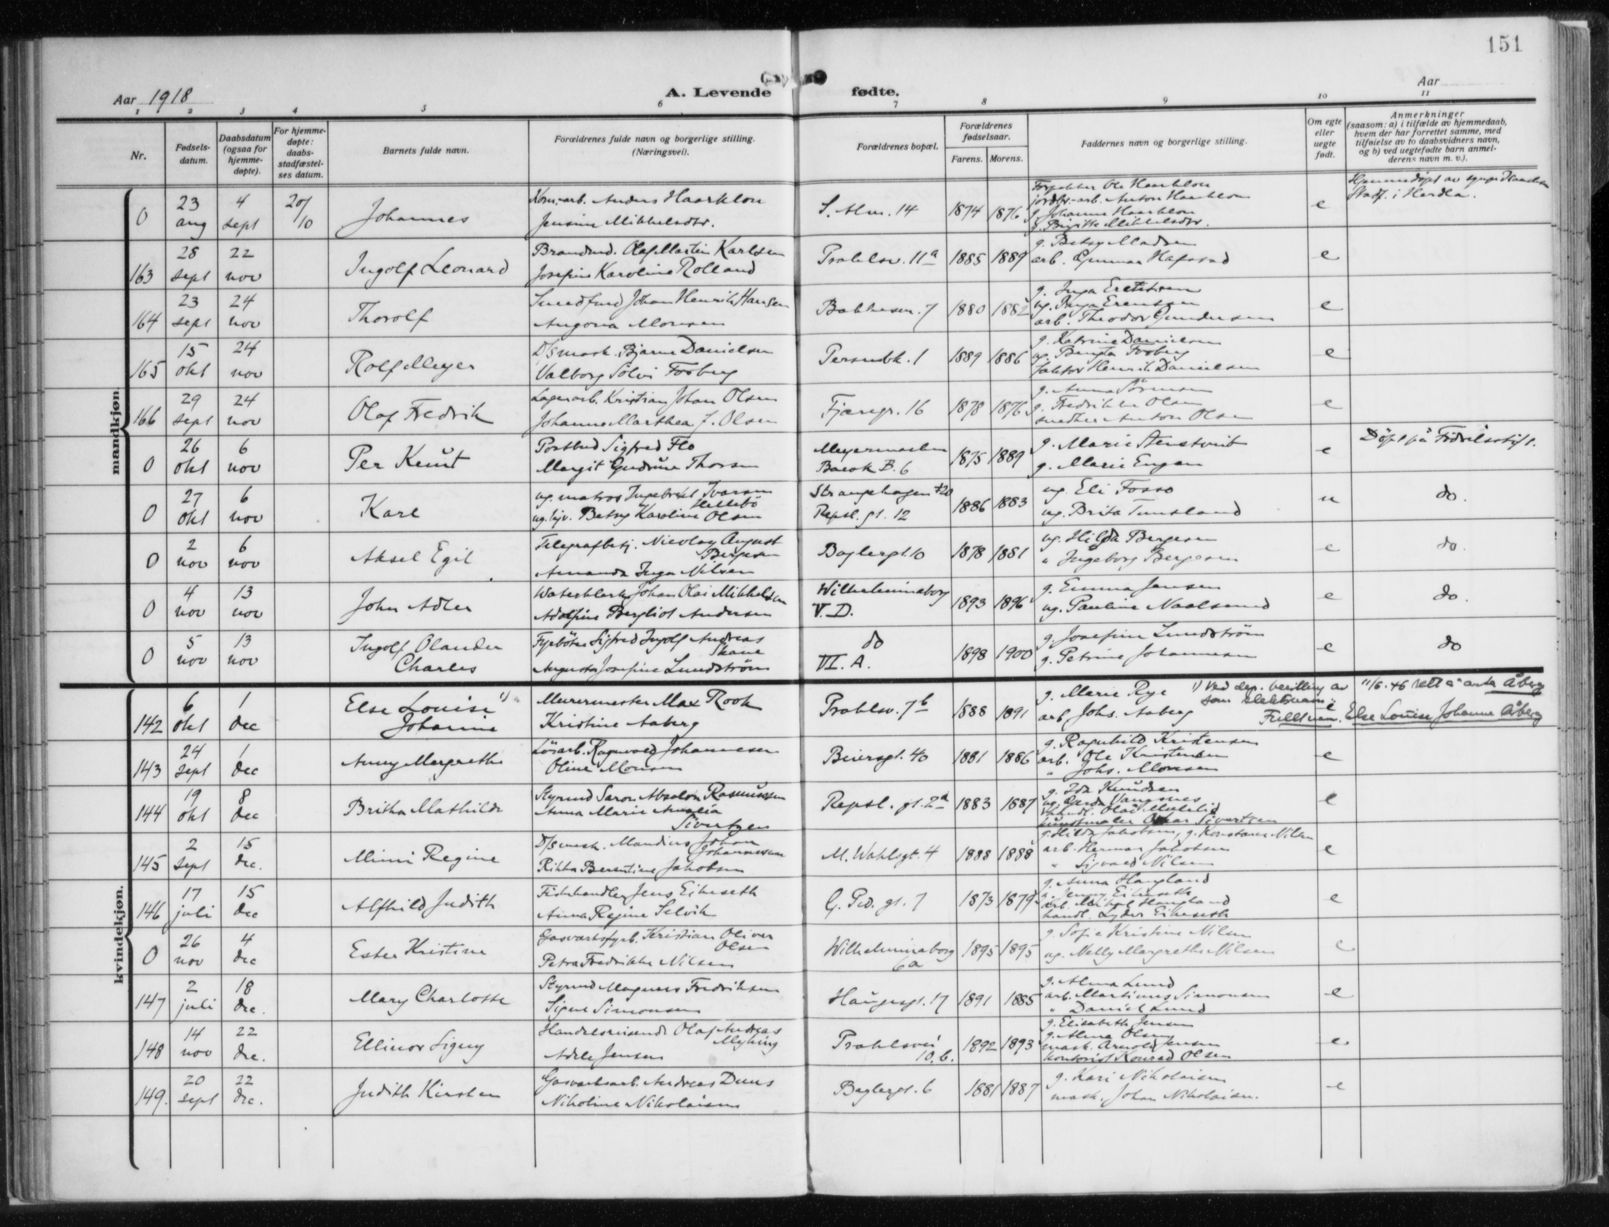 151
Aar 1918
A. Levende fødte.
Aar
1 2 3 4 5 6 7 8 9 10 11
Nr.
Fødsels-datum.
Daabsdatum (ogsaa for hjemme-døpte).
For hjemme-døpte: daabs-stadfæstel-ses datum.
Barnets fulde navn.
Forældrenes fulde navn og borgerlige stilling. (Næringsvei).
Forældrenes bopæl.
Forældrenes fødselsaar.
Farens. Morens.
Faddernes navn og borgerlige stilling.
Om egte eller uegte født.
Anmerkninger
(saasom: a) i tilfælde av hjemmedaab, hvem der har forrettet samme, med tilføielse av to daabsvidners navn, og b) ved uegtefødte barn anmel-derens navn m. v.).
mandkjøn.
0 23 aug 4 sept 20/10 Johannes
Anders Haarklou
Jensine Mikkelsdtr.
S. Alm. 14 1874 1876
Ole Haarklou
Anton Haarklou
g. Johanne Haarklou
g. Birgitte Mikkelsdtr.
e
Hjemmedøpt av
Stadf. i Herdla.
163 28 sept 22 nov Ingolf Leonard
Brandmd. Olaf Martin Karlsen
Josefine Karoline Rolland
Prahlsv. 11a 1885 1889
g. Betsy Madsen
arb. Gunnar Hafstad
e
164 23 sept 24 nov Thorolf
Johan Henrik Hansen
Angona Monsen
7 1880 1882
g. Inga
ug. Inga
arb. Theodor Gundersen
e
165 15 okt 24 nov Rolf Meyer
D/S mask. Bjarne Danielsen
Valborg Solvi Forberg
1 1889 1886
g. Katrine Danielsen
ug. Bergta Forberg
faktor Henrik Danielsen
e
166 29 sept 24 nov Olaf Fredrik
Lagerarb. Kristian Johan Olsen
Johanne Marthea f. Olsen
Fjæregr. 16 1878 1876
g. Anna Sörensen
g. Fredrikke Olsen
Anton Olsen
e
0 26 okt 6 nov Per Knut
Postbud Sigfred Flo
Margit Gudrune Thorsen
B. 6 1875 1889
g. Marie Stenstveit
g. Marie Engen
e
Döpt på Födselsstift.
0 27 okt 6 nov Karl
ug. matros Ingebrikt Ivarsen
ug. tjv. Betsy Karoline Olsen
Strangehagen 20
Repsl. gt. 12 1886 1883
ug. Eli Fosso
ug. Brita Tunsland
u
do.
0 2 nov 6 nov Aksel Egil
Telegrafbetj. Nicolay August Bergesen
Amanda Inga Nilsen
Baglergt 10 1878 1881
ug. Hilda Bergesen
" Ingeborg Bergesen
e
do.
0 4 nov 13 nov John Adler
Johan Olai Mikkelsen
Adolfine Bergliot Andersen
Wilhelminaborg
V. D. 1893 1896
g. Emma Jansen
ug. Pauline
e
do.
0 5 nov 13 nov Ingolf Olander Charles
Fyrböter Sigfred Ingolf Andreas Skaue
Augusta Josefine Lundström
do
VII. A. 1898 1900
g. Josefine Lundström
g. Petrine Johannesen
e
do
kvindekjøn.
142 6 okt 1 dec Else Louise 1) Johanne
Murermester Max Rook
Kristine Aaberg
Prahlsv. 7b 1888 1891
g. Marie Rye
arb. Johs. Aaberg
1) Ved dep. bevilling av 11/6. 46 rett å anta Åberg
som slektsnavn
Fullt navn. Else Louise Johanne Åberg
143 24 sept 1 dec Anny Margrethe
Løsarb. Ragnvald Johannesen
Oline Monsen
40 1881 1886
g. Ragnhild Kristensen
arb. Ole Kristensen
" Johs. Monsen
e
144 19 okt 8 dec Britha Mathilde
Styrmd Saron Absalon Rasmussen
Anna Marie Amalia Sivertzen
Repsl. gt. 2d 1883 1887
g. Ida Knudsen
kunstmaler Oskar Sivertsen
e
145 2 sept 15 dec. Mimi Regine
D/S mask. Mandius Johan Johannessen
Rikka Berentine Jakobsen
M. Wahlsgt. 4 1888 1888
g. Hilda Jakobsen, g. Konstanse Nilsen
arb. Herman Jakobsen
" Sigvard Nilsen
e
146 17 juli 15 dec Alfhild Judith
Fiskehandler Jens Eikeseth
Anna Regine Selvik
G. Ped. gt. 7 1873 1879
g. Anna Haugland
g. Jenny Eikeseth
handl. Lyder Eikeseth
e
0 26 nov 4 dec Ester Kristine
Gasværksfyrb. Kristian Oliver Olsen
Petra Fredrikke Nilsen
Wilhelminaborg 6a 1895 1895
g. Sofie Kristine Nilsen
ug. Nelly Margrethe Nilsen
e
147 2 juli 18 dec. Mary Charlotte
Styrmd Magnus Fredriksen
Signe Simonsen
Haugegt. 17 1891 1885
g. Alma Lund
arb. Martinus Simonsen
" Daniel Lund
e
148 14 nov 22 dec. Ellinor Signy
Handelsreisende Olaf Andreas Myhring
Adele Jensen
Prahlsvei 10, b. 1892 1893
g. Elisabeth Jensen
g. Alma Olsen
mask. Arnold Jensen
kontorist Konrad Olsen
e
149. 20 sept 22 dec. Judith Kirsten
Gasværksarb. Andreas Duus
Nikoline Nikolaisen
Baglergt. 6 1881 1887
g. Kari Nikolaisen
mask. Johan Nikolaisen.
e